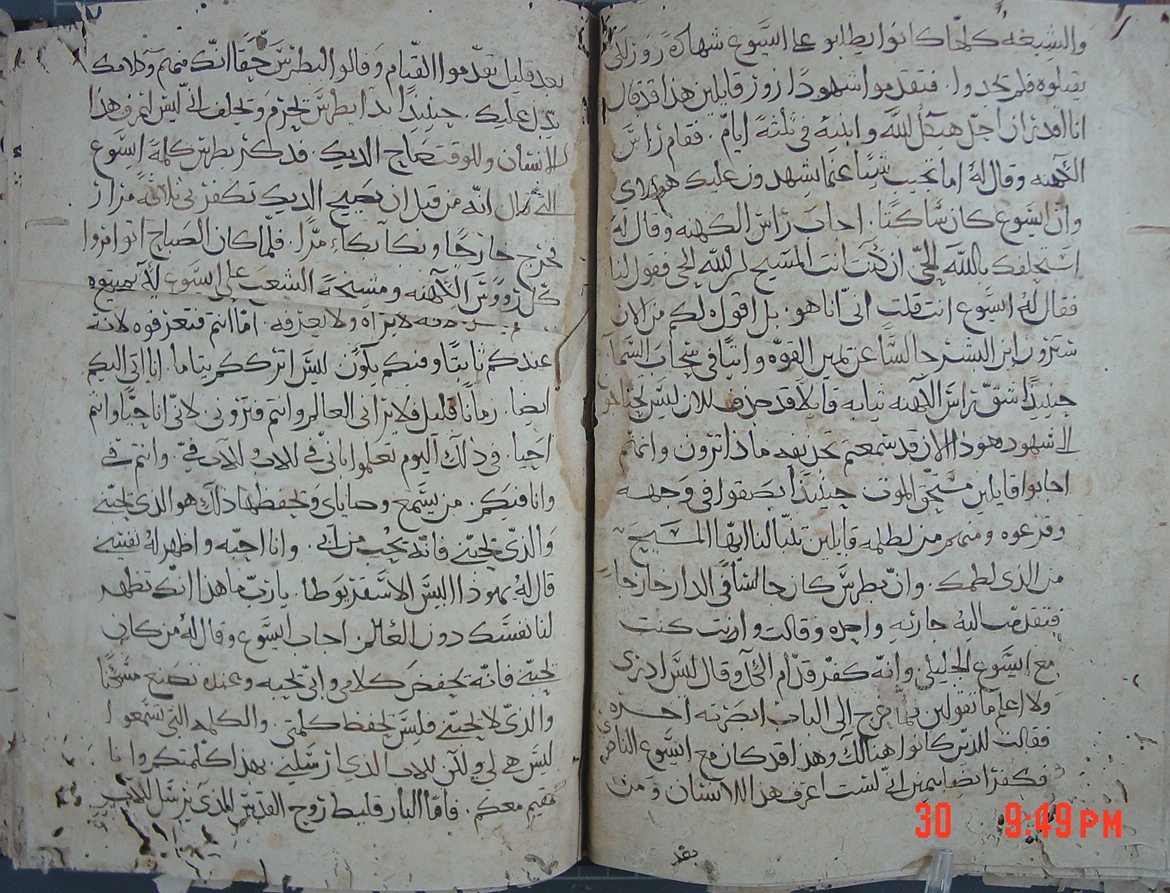 والشيخه كلها كانوا يطلبوا على ايسوع شهادة زور لكي
يقتلوه فلم يجدوا. فتقدموا اشهودا زور قايلين هذا قد قال
انا اقدر ان احل هيكل الله وابنيه في ثلثة ايام. فقام راس
الكهنه وقال له اما تجيب شيئا عما يشهدون عليك هولاي
وان ايسوع كان ساكتا. اجاب راس الكهنه وقال له
استحلفك بالله الحي ان كنت انت المسيح ابن الله الحي فقول لنا
فقال له ايسوع انت قلت اني انا هو. بل اقول لكم من الان
سترون ابن البشر جالسا عن يمين القوه واتيا في سحاب السما
حينيذا شق راس الكهنه ثيابه قايلا قد جدف الان ليس نحتاجو
الى شهود هوذا الان قد سمعتم تجديفه ماذا ترون وانتم
اجابوا قايلين مستحق الموت حينيذا بصقوا في وجهه
وقرعوه ومنهم من لطمه قايلين تنبا لنا ايها المسيح
من الذي لطمك. وان بطرس كان جالسا في الدار خارجا
فتقدمت اليه جاريه واحده وقالت وانت كنت
مع ايسوع الجليلي. وانه كفر قدام الكل وقال ليس ادري
ولا اعلم ما تقولين فلما خرج الى الباب ابصرته اخره
فقالت للذين كانوا هنالك وهذا قد كان مع ايسوع الناصري
فكفر ايضا بيمين اني لست اعرف هذا الانسان ومن
بعد
بعد قليل تقدموا القيام وقالوا لبطرس حقا انك منهم وكلامك
يدل عليك. حينيذا بدا بطرس يحرم ويحلف اني ليس اعرف هذا
الانسان وللوقت صاح الديك. فذكر بطرس كلمة ايسوع
الذي قال انه من قبل ان يصيح الديك تكفر بي ثلاثة مرار
فخرج خارجا وبكا بكاء مرا. فلما كان الصباح اتوامروا
كل رووس الكهنه ومشيخة الشعب على ايسوع لكي يميتوه
لانه لا يراه ولا يعرفه. اما انتم فتعرفوه لانه
عندكم ثابتا وفيكم يكون ليس اترككم يتاما. انا اتي اليكم
ايضا. زمانا قليل فلا يراني العالم وانتم فتروني. لاني انا حيا وانتم
احيا. في ذلك اليوم تعلموا باني في الاب والاب في وانتم في
وانا فيكم. من يسمع وصاياي ويحفظها ذلك هو الذي يحبني
والذي يحبني فانه يحب من ابي. وانا احبه واظهر له نفسي
قال له يهوذا ليس الاسقريوطا. يا رب ما هذا انك تظهر
لنا نفسك دون العالم. اجاب ايسوع وقال له من كان
يحبني فانه يحفض كلامي وابي يحبه وعنده نصنع مسكنا
والذي لا يحبني فليس يحفظ كلمتي. والكلمه التي تسمعوا
ليس هي لي ولكن للاب الذي ارسلني. بهذا كلمتكم وانا
مقيم معكم. فاما البارقليط روح القدس الذي يرسل الاب
30 9:49PM